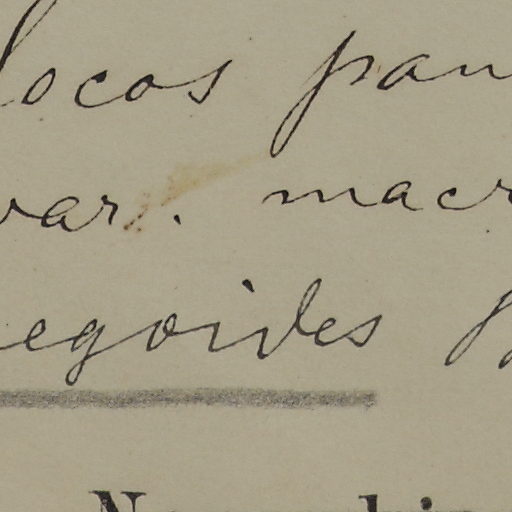 locos pan
var. macr
egoides